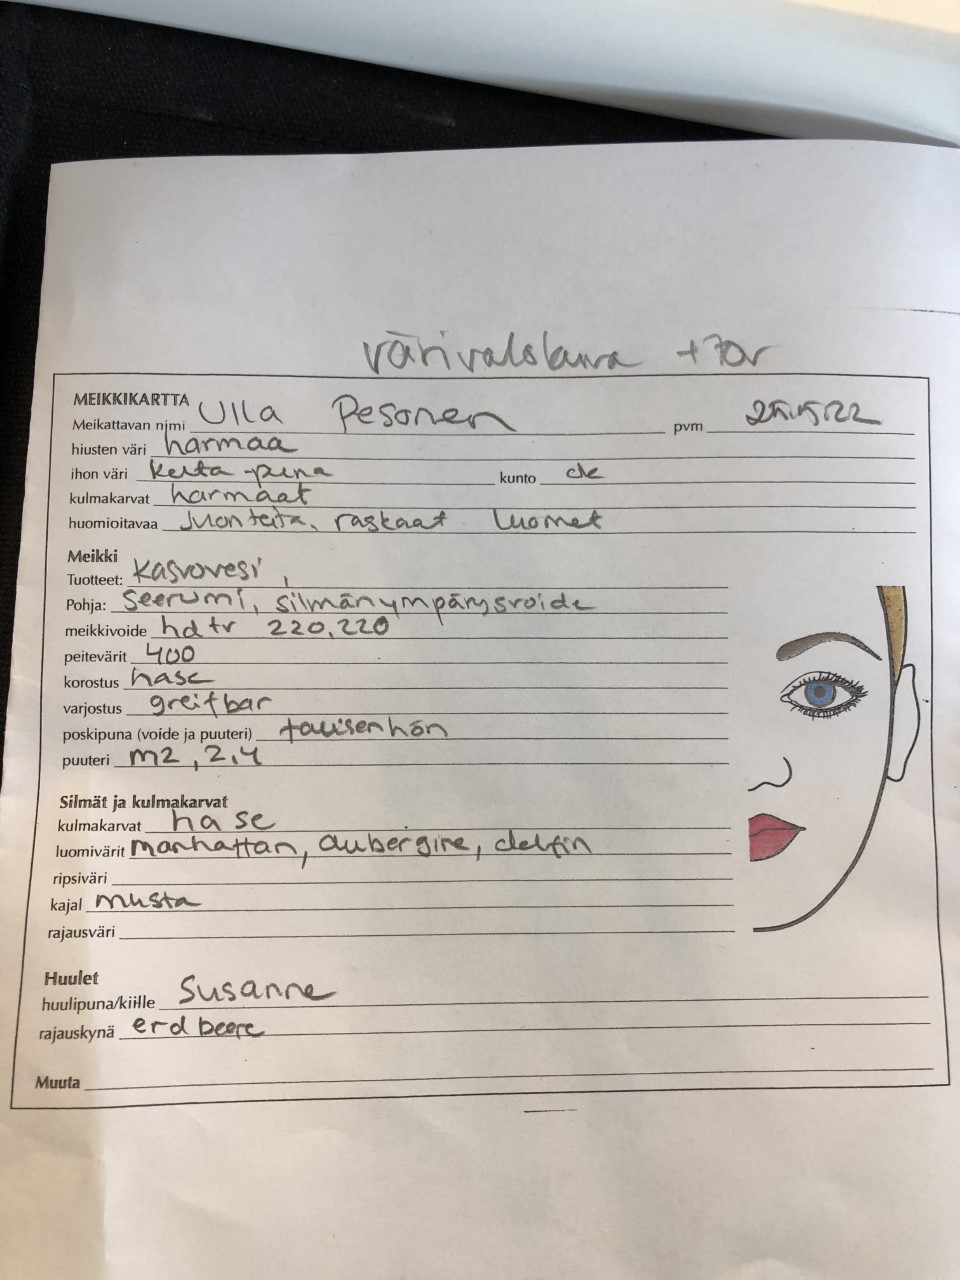 +70v
MEIKKIKARTTA
Meikattavan nimi Ulla Pesonen pvm
hiusten väri harmaa
ihon väri kelta-puna kunto ok
kulmakarvat harmaat
huomioitavaa juonteita, raskaat luomet
Meikki
Tuotteet: Kasvovesi,
Pohja: seerumi, silmänympärysvoide
meikkivoide hd tv 220, 220
peitevärit 400
korostus hase
varjostus greifbar
poskipuna (voide ja puuteri)
puuteri m2, 2,4
Silmät ja kulmakarvat
kulmakarvat hase
luomivärit manhattan, aubergine, delfin
ripsiväri
kajal musta
rajausväri
Huulet
huulipuna/kiille Susanne
rajauskynä erdbeere
Muuta